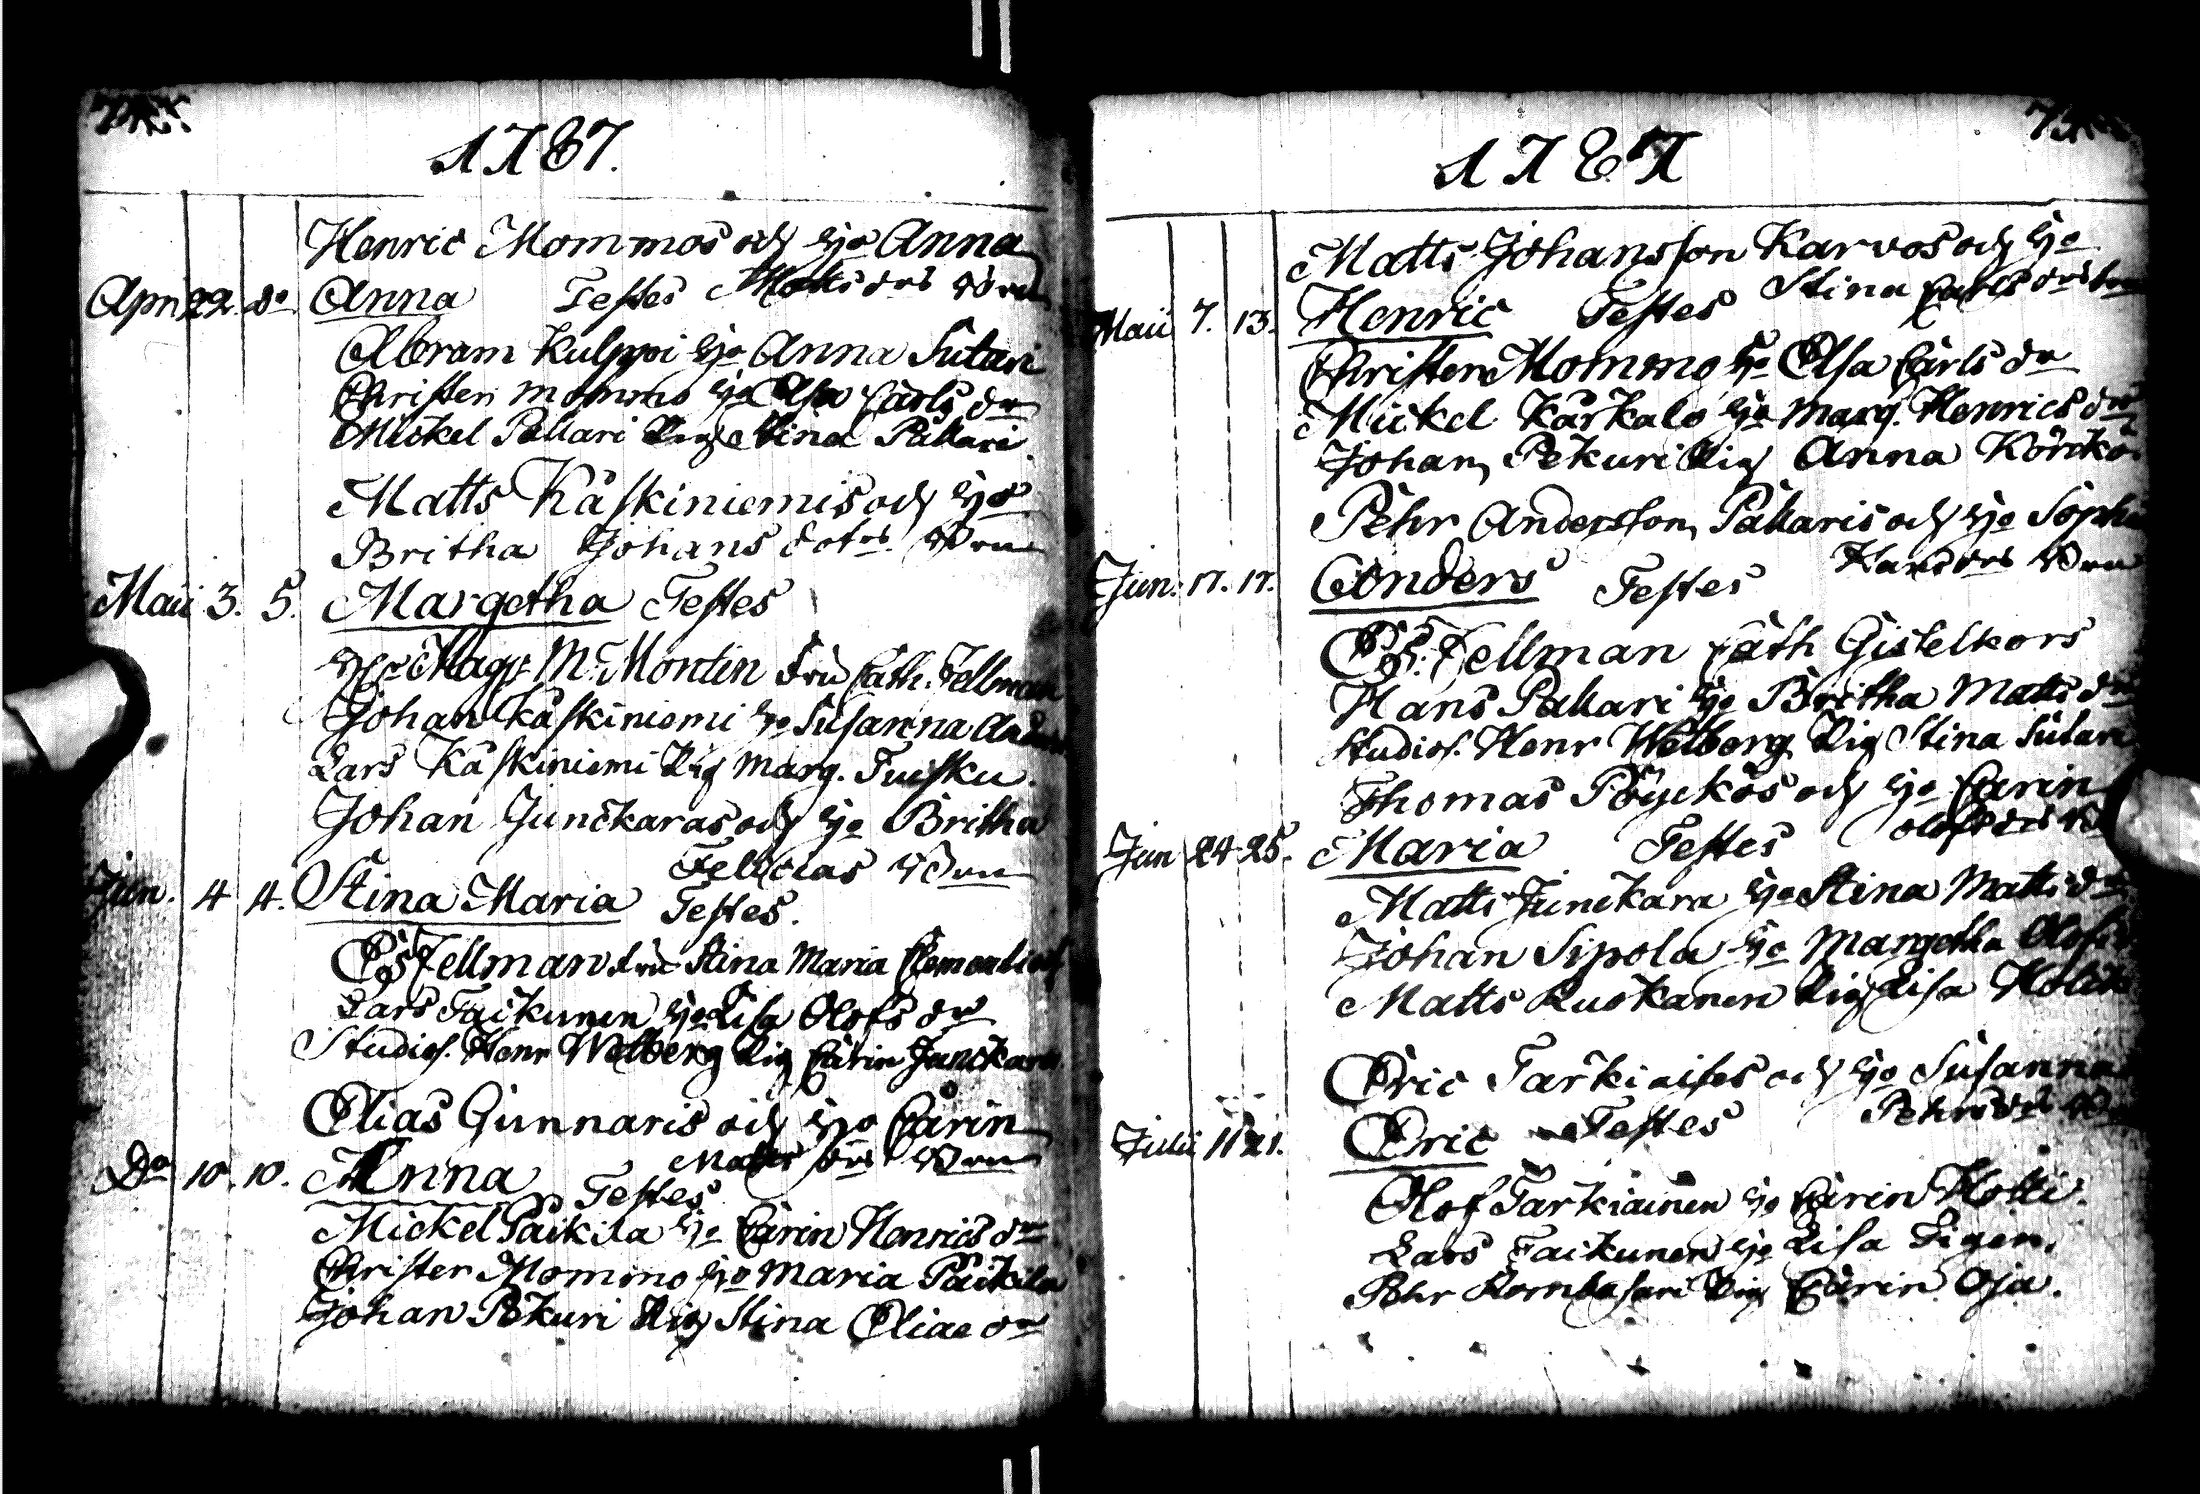 1787.
Henric Mommos och hjo Anna
Apri 22. do Anna Testes Matts drs barn
Abram Kulppi hjo Anna Sutari
Christer Mommo hjo Elsa Carls dr
Mickel Pallari Pig Stina Pallari
Matts Käskiniemis och hjos
Britha Johans dotrs barn
Maii 3. 5. Margetha Testes
Hr Mag. M. Montin fru Cath. Fellman
Johan Käskiniemi hjo Susanna Anders
Lars Käskiniemi Pig Marg. Tuisku.
Johan Junckaras och hjo Britha
barn
Jun. 4 4. Stina Maria Testes.
Fellman fru Stina Maria
Lars Taikunen hjo Lisa Olofs dr
Studios. Henr Welberg Pig Carin Junckara
Elias Gunnaris och hjo Carin
Do 10. 10. Anna Testes barn
Mickel Päikila hjo Carin Henrics dr
Christer Mommo hjo Maria Päikila
Johan Pekuri Pig Stina Eliae dr
1787
Matts Johansson Karvos och hjo
Stina Carls drs barn
Maii 7. 13. Henric Testes
Christer Mommo hjo Elsa Carls dr
Mickel Karkalo hjo Marg. Henrics dr
Johan Pekuri Pig Anna Körckö
Pehr Andersson Pallaris och hjo Sophia
Jun. 17. 17. Anders Testes Hans drs barn
Fellman Cath Gistelkors
Hans Pallari hjo Britha Matts dr
Studios. Henr Welberg Pig Stina Sutari
Thomas Pöyckös och hjo Carin
Jun 24 25. Maria Testes Olofs drs
Matts Junckara hjo Stina Matts dr
Johan Sipola hjo Margetha Olofs
Matts Ruokanen Pig Lisa
Eric Tarkiaises och hjo Susanna
Julii 11 21. Eric Testes Pehrs drs
Olof Tarkiainen hjo Carin Holti.
Lars Taikunen hjo Lisa
Pehr Pig Carin Oja.